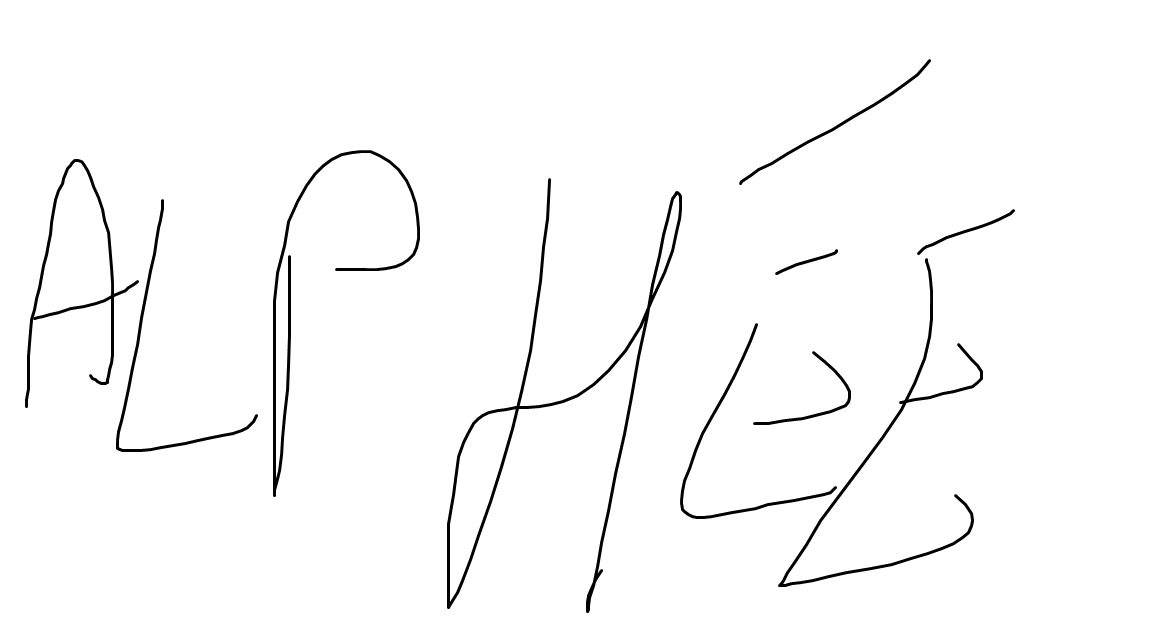 ALPHÉE